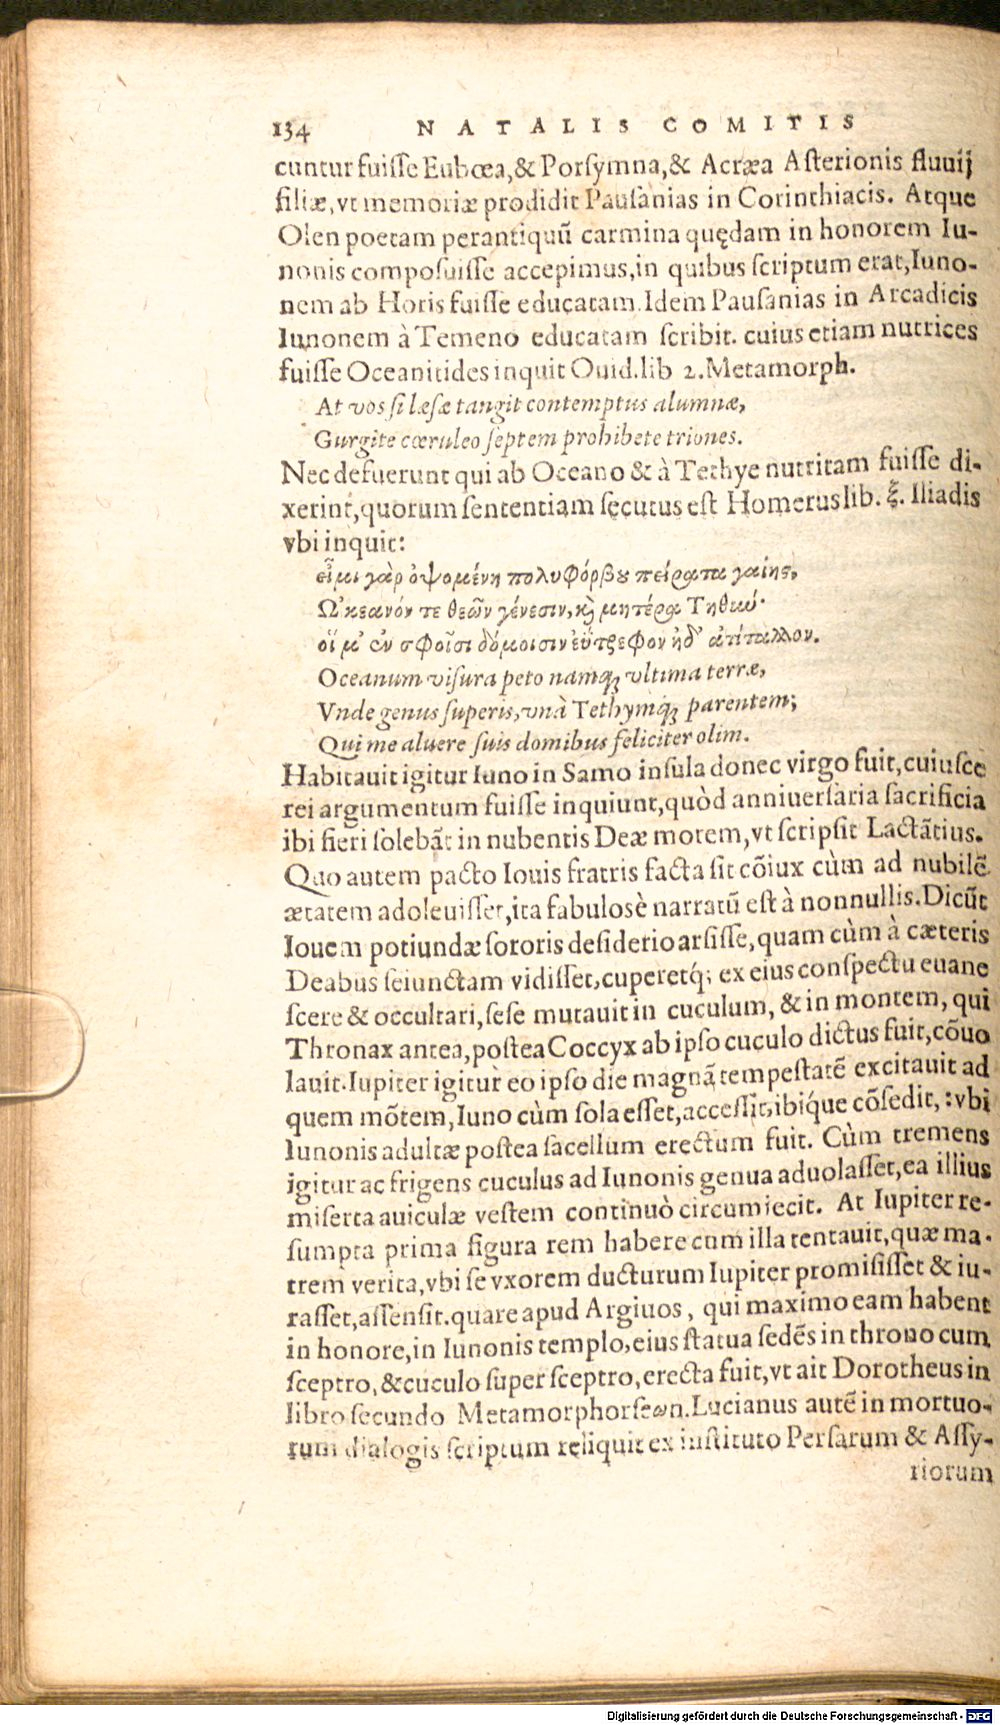 134 NATALIS COMITIS
cuntur fuiſſe Eubœa,& Porſymna,& Acræa Aſterionis fluuij
filiæ,vt memoriæ prodidit Pauſanias in Corinthiacis. Atque
Olen poetam perantiquū carmina quędam in honorem Iu-
nonis compoſuiſſe accepimus,in quibus ſcriptum erat,Iuno-
nem ab Horis fuiſſe educatam.Idem Pauſanias in Arcadicis
Iunonem à Temeno educatam ſcribit. cuius etiam nutrices
fuiſſe Oceanitides inquit Ouid.lib 2.Metamorph.
At vos ſi læſæ tangit contemptus alumnæ,
Gurgite cœruleo ſeptem prohibete triones.
Nec defuerunt qui ab Oceano & à Tethye nutritam fuiſſe di-
xerint,quorum ſententiam ſecutus eſt Homerus lib. ξ. Iliadis
vbi inquit:
εἶμι γὰρ ὀψομένη πολυφόρβȣ πείρατα γαίης,
Ὠκεανόν τε θεῶν γένεσιν,ϗ μητέρα Τηθιύ·
οἵ μ' ἐν σφοῖσι δόμοισιν ἐΰτρεφον ἠδ' ἀτίταλλον.
Oceanum viſura peto namq; vltima terræ,
Vnde genus ſuperis,vnà Tethymq; parentem;
Qui me aluere ſuis domibus feliciter olim.
Habitauit igitur Iuno in Samo inſula donec virgo fuit,cuiuſce
rei argumentum fuiſſe inquiunt,quòd anniuerſaria ſacrificia
ibi fieri ſolebāt in nubentis Deæ morem,vt ſcripſit Lactātius.
Quo autem pacto Iouis fratris facta ſit cōiux cùm ad nubilē
ætatem adoleuiſſet,ita fabuloſè narratū eſt à nonnullis.Dicūt
Iouem potiundæ ſororis deſiderio arſiſſe,quam cùm à cæteris
Deabus ſeiunctam vidiſſet,cuperetq; ex eius conſpectu euane
ſcere & occultari,ſeſe mutauit in cuculum, & in montem, qui
Thronax antea,poſtea Coccyx ab ipſo cuculo dictus fuit,cōuo
lauit.Iupiter igitur eo ipſo die magnā tempeſtatē excitauit ad
quem mōtem,Iuno cùm ſola eſſet,acceſſit,ibíque cōſedit, :vbi
Iunonis adultæ poſtea ſacellum erectum fuit. Cùm tremens
igitur ac frigens cuculus ad Iunonis genua aduolaſſet,ea illius
miſerta auiculæ veſtem continuò circumiecit. At Iupiter re-
ſumpta prima figura rem habere cum illa tentauit,quæ ma-
trem verita,vbi ſe vxorem ducturum Iupiter promiſiſſet & iu-
raſſet,aſſenſit.quare apud Argiuos, qui maximo eam habent
in honore,in Iunonis templo,eius ſtatua ſedēs in throno cum
ſceptro,&cuculo ſuper ſceptro,erecta fuit,vt ait Dorotheus in
libro ſecundo Metamorphorſeων.Lucianus autē in mortuo-
rum dialogis ſcriptum reliquit ex inſtituto Perſarum & Aſſy-
riorum
Digitalisierung gefördert durch die Deutsche Forschungsgemeinschaft - DFG